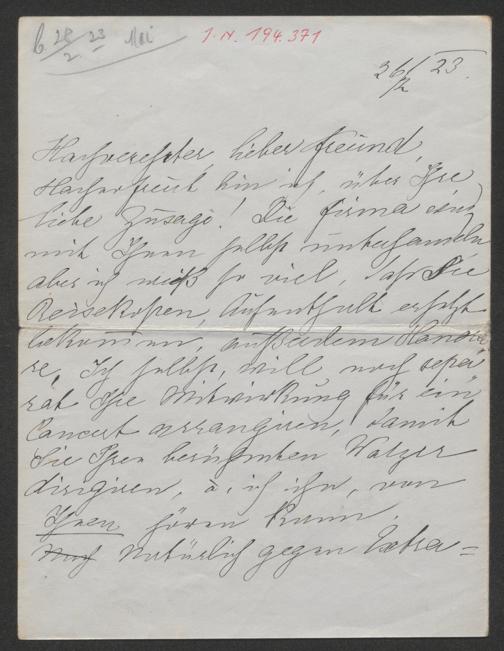 b. 28/2 23 Mai
I.N. 194.371
26/2 23.
Hochverehrter, lieber Freund,
Hocherfreut bin ich, über Ihre
liebe Zusage! Die Firma wird
mit Ihnen selbst unterhandeln
aber ich weiß so viel, daß Sie
Reisekosten, Aufenthalt ersetzt
bekommen, außerdem Honora-
re, Ich selbst, will noch sepa-
rat Ihre Mitwirkung für ein
Concert arrangiren, damit
Sie Ihren berühmten Walzer
dirigiren, u. ich ihn, von
Ihnen hören kann.
Natürlich gegen Extra=